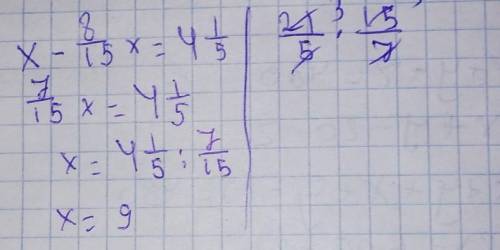 x - 8/15 x = 4 1/5
7/15 x = 4 1/5
x = 4 1/5 : 7/15
x = 9
21/5 : 15/7
3